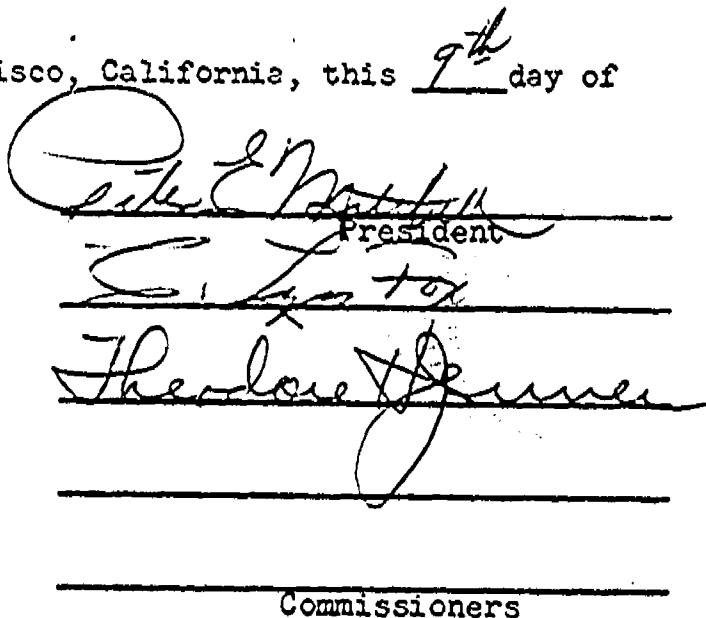 isco, California, this 9th day of
Peter E Mitchell
President
E. Lyn Fox
Theodore Jenner
Commissioners